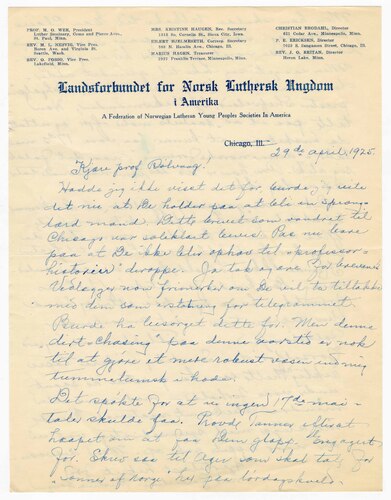 PROF. M. O. WEE, President
Luther Seminary, Como and Pierce Aves.
St. Paul, Minn.
REV. M. L. NESVIG, Vice Pres.
Boren Ave. and Virginia St.
Seattle, Wash.
REV. O. FOSSO, Vice Pres.
Lakefield, Minn.
MRS. KRISTINE HAUGEN, Rec. Secretary
Sioux City, Iowa
EILERT BJELMSETH, Corresp. Secretary
Hamlin Ave., Chicago, Ill.
MARIUS HAGEN, Treasurer
Franklin Terrace, Minneapolis, Minn.
CHRISTIAN BRODAHL, Director
Cedar Ave., Minneapolis, Minn.
P. E. ERICKSEN, Director
S. Sangamon Street, Chicago, Ill.
REV. J. O. BRITAN, Director
Heron Lake, Minn.
Landsforbundet for Norsk Luthersk Ungdom
i Amerika
A Federation of Norwegian Lutheran Young Peoples Societies In America
Chicago, Ill.
29de april, 1925.
Kjære prof Rolvaag!
Hadde jeg ikke visst det før burde jeg vide
det nu at De holder paa at bli en
mand. Dette brevet som vandret til
Chicago var soleklart bevis. Pas nu bare
paa at De ikke blir ophav til "professor
historier" deroppe. Ja tak
nu frimerker om De vil ta tiltakke
med dem som erstatning for telegrammet.
Burde ha besørget dette før. Men denne
"dirt-chasing" paa denne er nok
til at gjøre et mere robust væsen end mig
tummelumsk i hode.
Det spøkte for at vi ingen 17de mai-
taler skulde faa. Prøvde Tanner efterat
haapet om at faa Dem glapp. Engagert
før. Skrev saa til som skal tale for
"Sønner af Norge" her paa lørdagskveld.